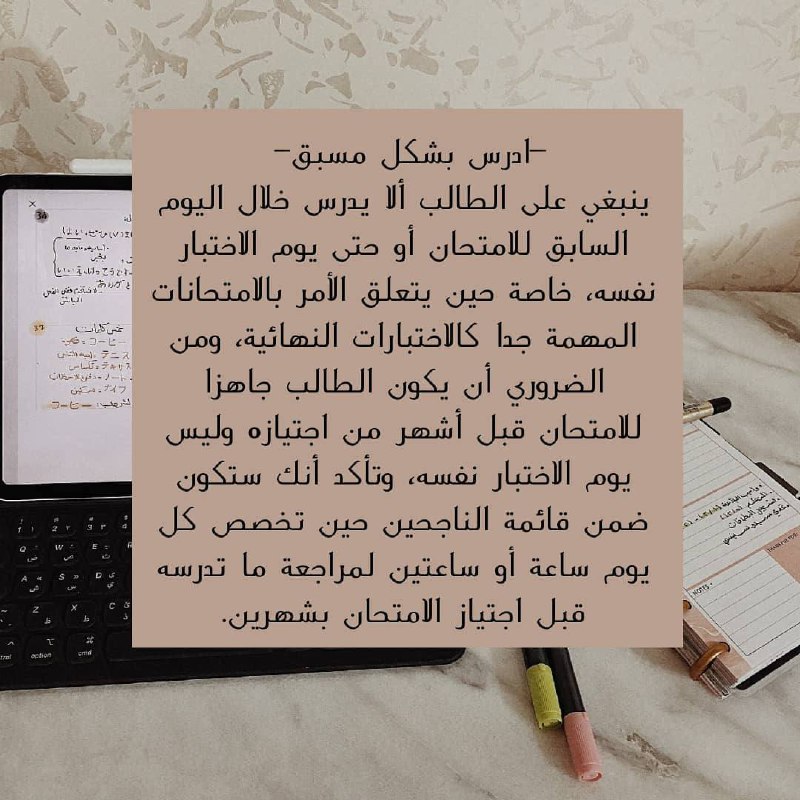 -ادرس بشكل مسبق-
ينبغي على الطالب ألا يدرس خلال اليوم
السابق للامتحان أو حتى يوم الاختبار
نفسه، خاصة حين يتعلق الأمر بالامتحانات
المهمة جدا كالاختبارات النهائية، ومن
الضروري أن يكون الطالب جاهزا
للامتحان قبل أشهر من اجتيازه وليس
يوم الاختبار نفسه، وتأكد أنك ستكون
ضمن قائمة الناجحين حين تخصص كل
يوم ساعة أو ساعتين لمراجعة ما تدرسه
قبل اجتياز الامتحان بشهرين.
34
37
コーヒー
テニス
ノート
ナイフ
コーヒー
Q W E
A S D
Z X C
option
cmd
NOTES